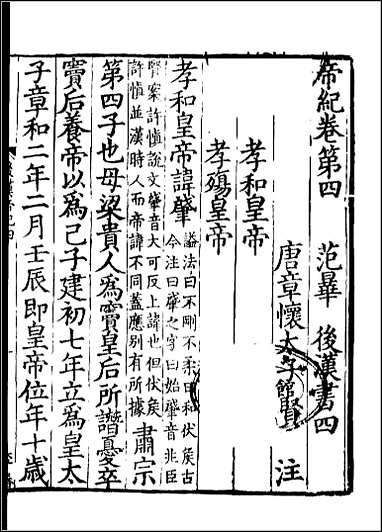 帝紀卷第四　范曄　後漢書四
唐章懷太子賢　注
孝和皇帝
孝殤皇帝
孝和皇帝諱肇
謚法曰不剛不柔曰和伏侯古
今注曰肇之字曰始肇音兆臣
賢案許慎說文肇音大可反上諱也但伏侯
許慎並漢時人而帝諱不同蓋應別有所據
肅宗
第四子也母梁貴人為竇皇后所譖憂卒
竇后養帝以為己子建初七年立為皇太
子章和二年二月壬辰即皇帝位年十歲